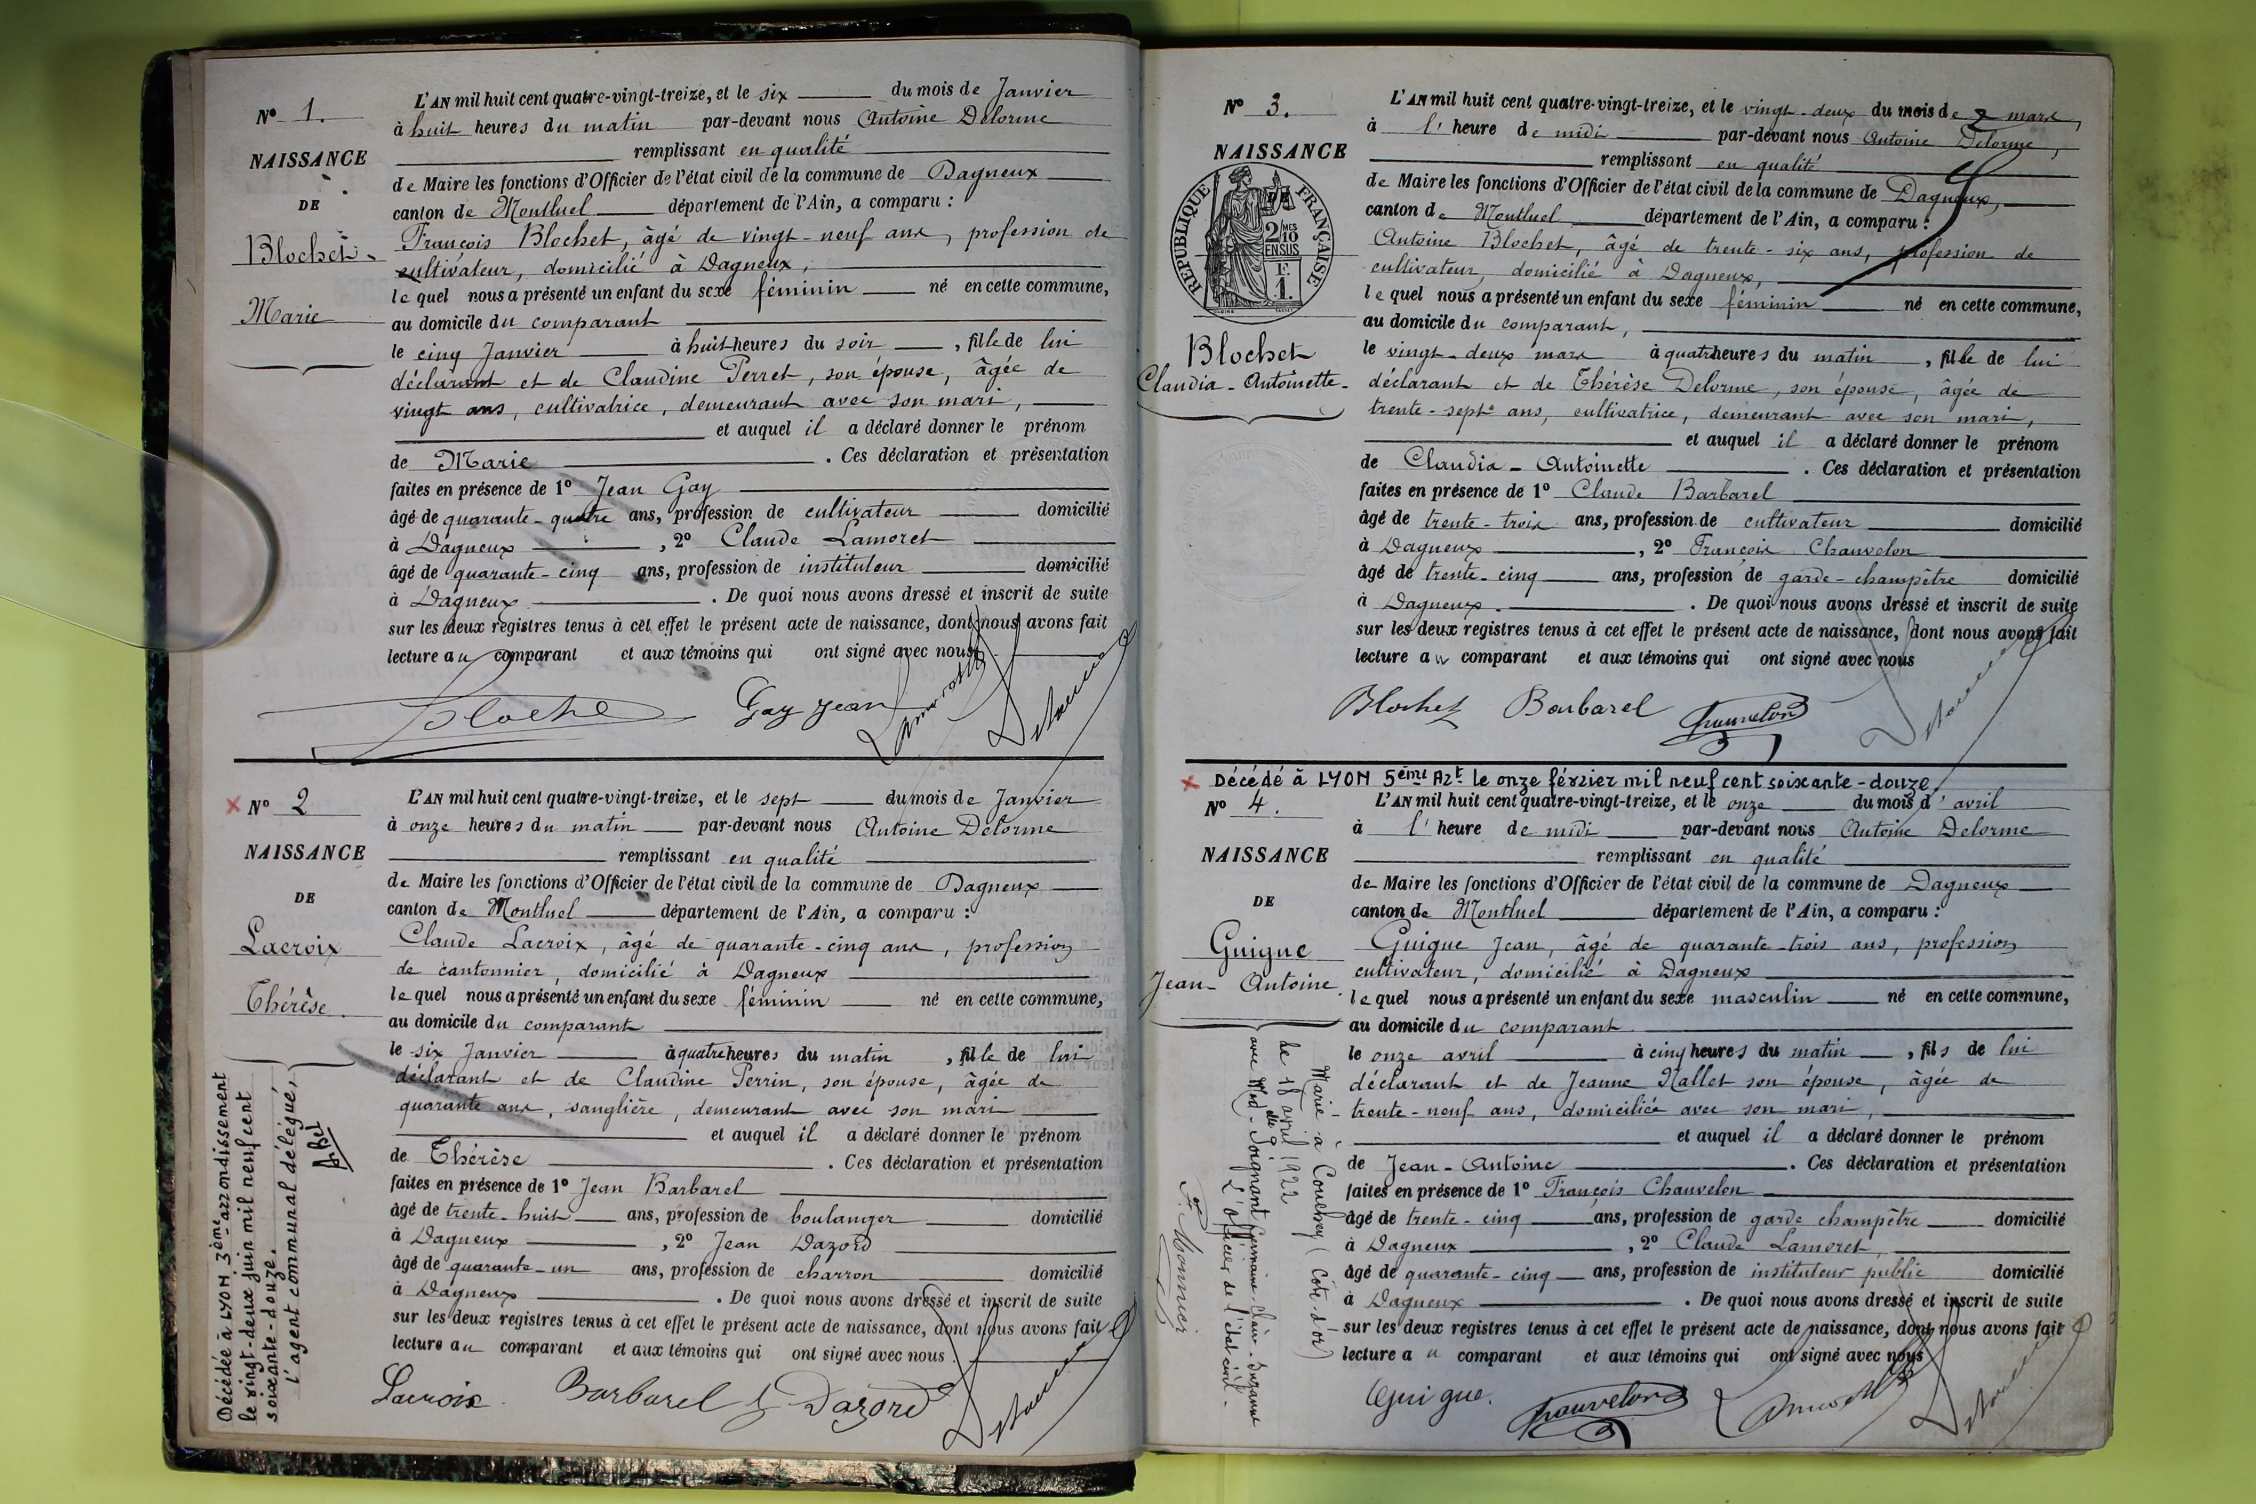 N° 1.
NAISSANCE
DE
Blochet
Marie
L'AN mil huit cent quatre-vingt-treize, et le six du mois de Janvier
à huit heures du matin par-devant nous Antoine Delorme
remplissant en qualité
de Maire les fonctions d'Officier de l'état civil de la commune de Dagneux
canton de Montluel département de l'Ain, a comparu :
François Blochet, âgé de vingt-neuf ans, profession de
cultivateur, domicilié à Dagneux,
lequel nous a présenté un enfant du sexe féminin né en cette commune,
au domicile du comparant
le cinq Janvier à huit heures du soir, fille de lui
déclarant et de Claudine Perret, son épouse, âgée de
vingt ans, cultivatrice, demeurant avec son mari,
et auquel il a déclaré donner le prénom
de Marie. Ces déclaration et présentation
faites en présence de 1° Jean Gay
âgé de quarante-quatre ans, profession de cultivateur domicilié
à Dagneux, 2° Claude Lamoret
âgé de quarante-cinq ans, profession de instituteur domicilié
à Dagneux. De quoi nous avons dressé et inscrit de suite
sur les deux registres tenus à cet effet le présent acte de naissance, dont nous avons fait
lecture au comparant et aux témoins qui ont signé avec nous.
Blochet Gay Jean Lamoret Delorme
N° 2
NAISSANCE
DE
Lacroix
Thérèse.
Décédée à LYON 3ème arrondissement
le vingt-deux juin mil neuf cent
soixante-douze.
l'agent communal délégué,
L'AN mil huit cent quatre-vingt-treize, et le sept du mois de Janvier
à onze heures du matin par-devant nous Antoine Delorme
remplissant en qualité
de Maire les fonctions d'Officier de l'état civil de la commune de Dagneux
canton de Montluel département de l'Ain, a comparu :
Claude Lacroix, âgé de quarante-cinq ans, profession
de cantonnier, domicilié à Dagneux
lequel nous a présenté un enfant du sexe féminin né en cette commune,
au domicile du comparant
le six Janvier à quatre heures du matin, fille de lui
déclarant et de Claudine Perrin, son épouse, âgée de
quarante ans, sanglière, demeurant avec son mari
et auquel il a déclaré donner le prénom
de Thérèse. Ces déclaration et présentation
faites en présence de 1° Jean Barbarel
âgé de trente-huit ans, profession de boulanger domicilié
à Dagneux, 2° Jean Dazord
âgé de quarante-un ans, profession de charron domicilié
à Dagneux. De quoi nous avons dressé et inscrit de suite
sur les deux registres tenus à cet effet le présent acte de naissance, dont nous avons fait
lecture au comparant et aux témoins qui ont signé avec nous.
Lacroix. Barbarel Dazord Delorme
N° 3.
NAISSANCE
RÉPUBLIQUE FRANÇAISE
2 MES
10
EN SUS
Blochet
Claudia-Antoinette-
L'AN mil huit cent quatre-vingt-treize, et le vingt-deux du mois de mars,
à l'heure de midi par-devant nous Antoine Delorme,
remplissant en qualité
de Maire les fonctions d'Officier de l'état civil de la commune de Dagneux,
canton de Montluel département de l'Ain, a comparu :
Antoine Blochet, âgé de trente-six ans, profession de
cultivateur, domicilié à Dagneux,
lequel nous a présenté un enfant du sexe féminin né en cette commune,
au domicile du comparant,
le vingt-deux mars à quatre heures du matin, fille de lui
déclarant et de Thérèse Delorme, son épouse, âgée de
trente-sept ans, cultivatrice, demeurant avec son mari,
et auquel il a déclaré donner le prénom
de Claudia-Antoinette. Ces déclaration et présentation
faites en présence de 1° Claude Barbarel
âgé de trente-trois ans, profession de cultivateur domicilié
à Dagneux, 2° François Chauvelon
âgé de trente-cinq ans, profession de garde-champêtre domicilié
à Dagneux. De quoi nous avons dressé et inscrit de suite
sur les deux registres tenus à cet effet le présent acte de naissance, dont nous avons fait
lecture au comparant et aux témoins qui ont signé avec nous
Blochet Barbarel Chauvelon Delorme
Décédé à LYON 5ème Azt. le onze février mil neuf cent soixante-douze
N° 4.
NAISSANCE
DE
Guigue
Jean-Antoine
Marié à Couchey (Côte d'or)
le 18 avril 1922
avec Mlle Germaine Claire Suzanne
L'officier de l'état civil.
F. Monnier
L'AN mil huit cent quatre-vingt-treize, et le onze du mois d'avril
à l'heure de midi par-devant nous Antoine Delorme
remplissant en qualité
de Maire les fonctions d'Officier de l'état civil de la commune de Dagneux
canton de Montluel département de l'Ain, a comparu :
Guigue Jean, âgé de quarante-trois ans, profession
cultivateur, domicilié à Dagneux
lequel nous a présenté un enfant du sexe masculin né en cette commune,
au domicile du comparant
le onze avril à cinq heures du matin, fils de lui
déclarant et de Jeanne Nallet son épouse, âgée de
trente-neuf ans, domiciliée avec son mari,
et auquel il a déclaré donner le prénom
de Jean-Antoine. Ces déclaration et présentation
faites en présence de 1° François Chauvelon
âgé de trente-cinq ans, profession de garde champêtre domicilié
à Dagneux, 2° Claude Lamoret,
âgé de quarante-cinq ans, profession de instituteur public domicilié
à Dagneux. De quoi nous avons dressé et inscrit de suite
sur les deux registres tenus à cet effet le présent acte de naissance, dont nous avons fait
lecture au comparant et aux témoins qui ont signé avec nous
Guigue. Chauvelon Lamoret Delorme